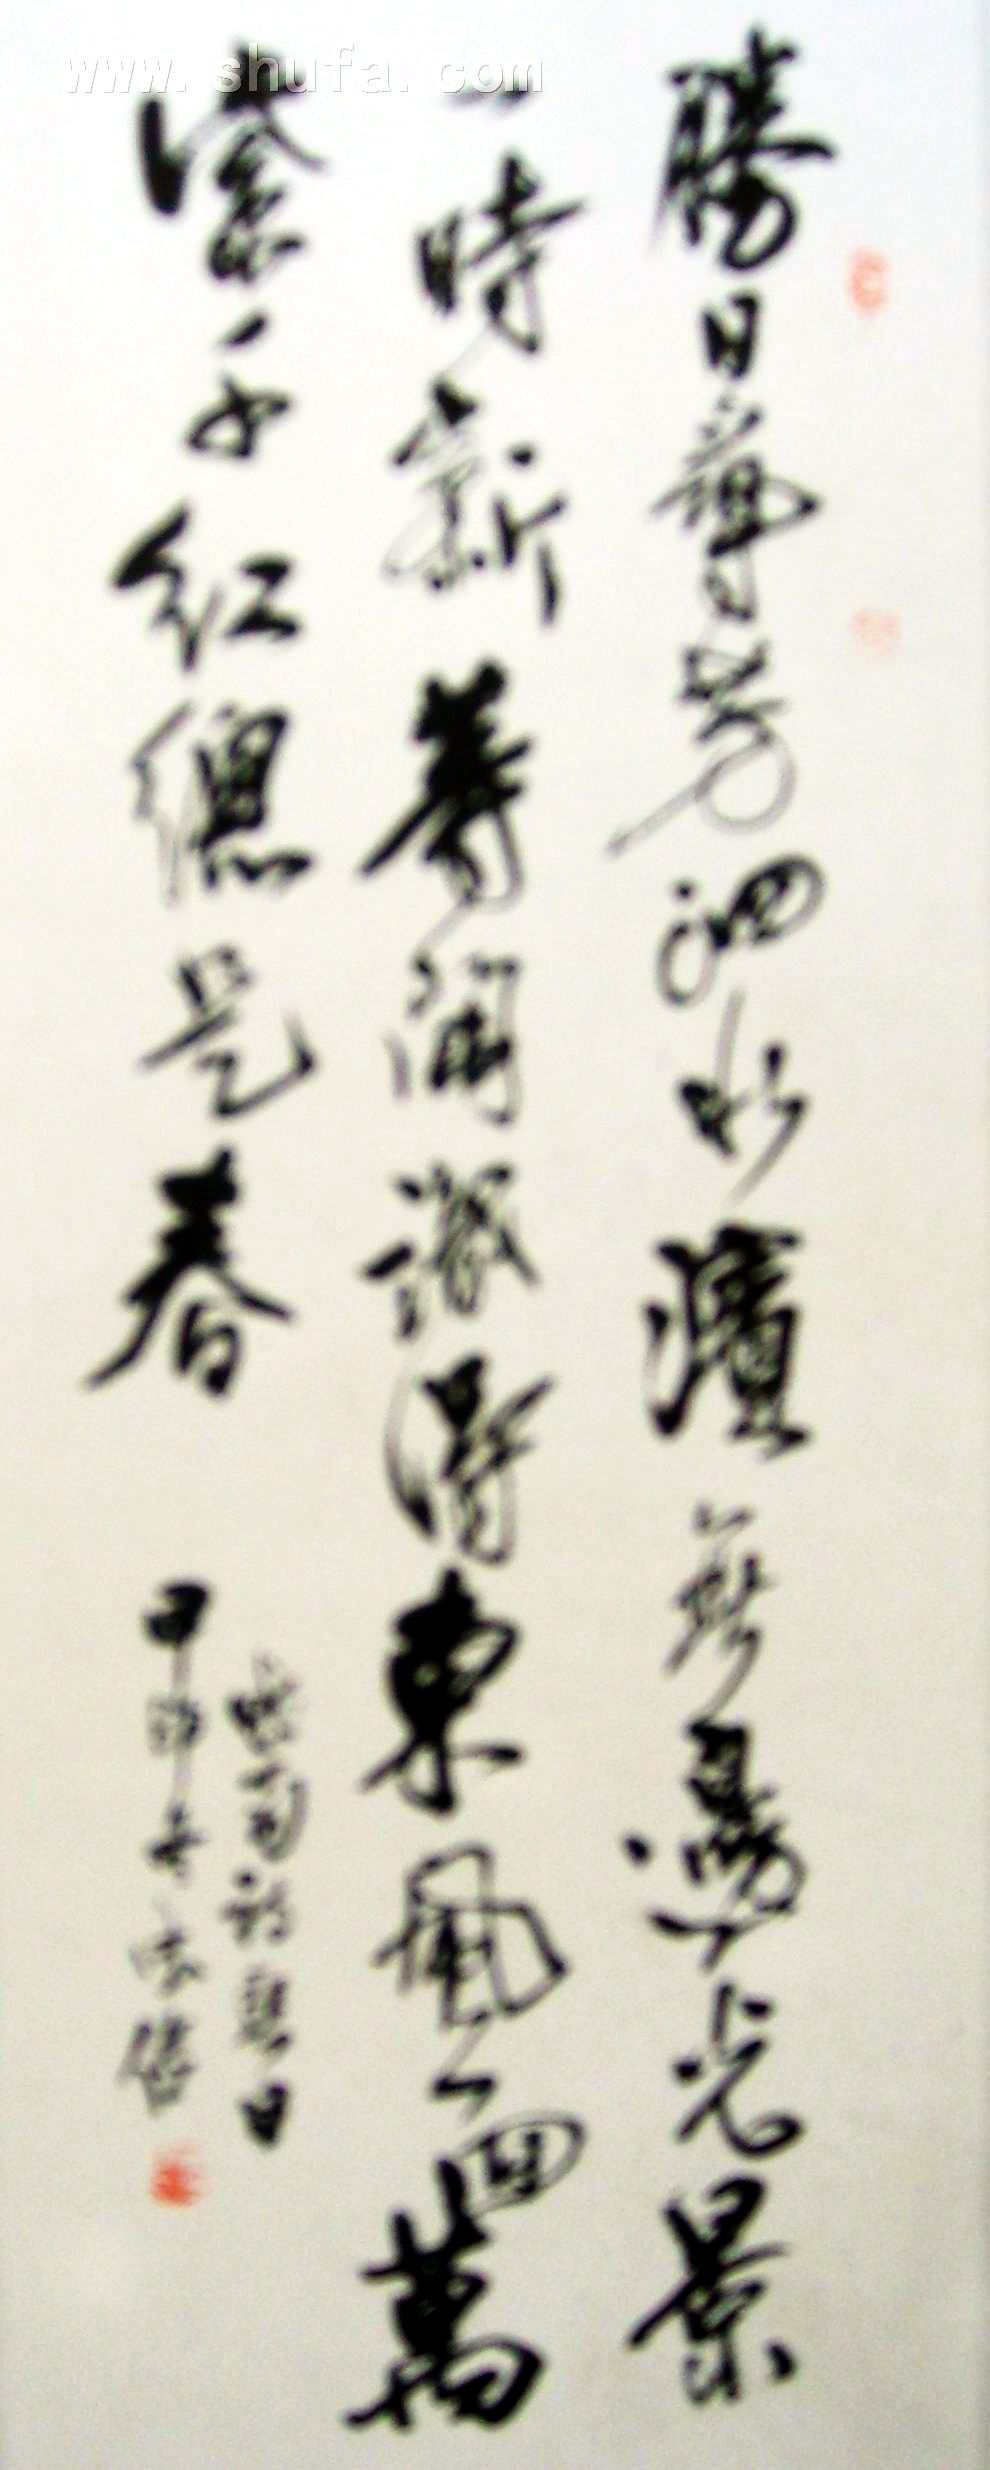 www.shufa.com
勝日尋芳泗水濱無邊光景
一時新等閑識得東風面萬
紫千紅總是春